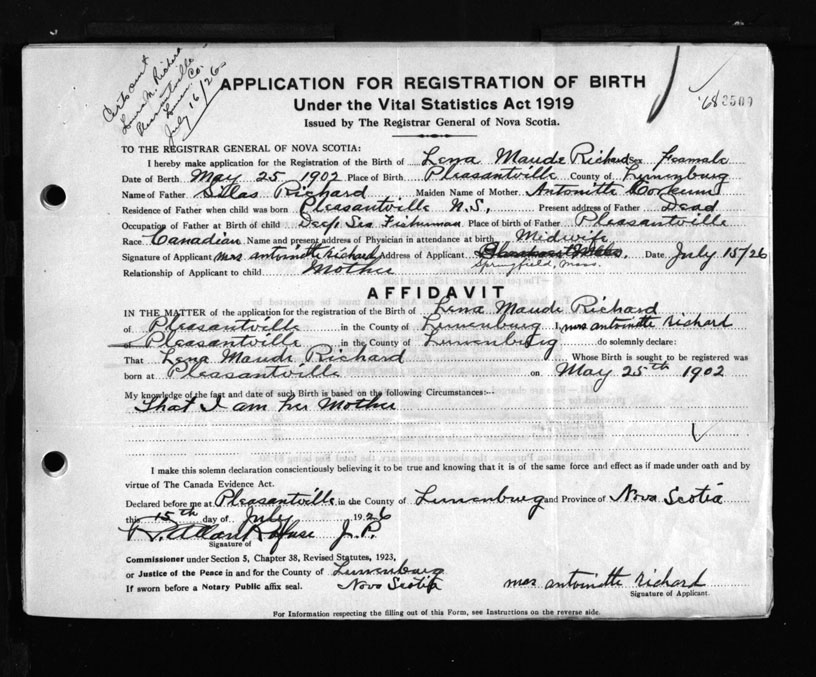 Lena M. Richard
Pleasantville
Lunen. Co.
July 16/26
APPLICATION FOR REGISTRATION OF BIRTH
Under the Vital Statistics Act 1919
Issued by The Registrar General of Nova Scotia.
'68 2509
TO THE REGISTRAR GENERAL OF NOVA SCOTIA:
I hereby make application for the Registration of the Birth of Lena Maude Richard Sex Feamale
Date of Birth May 25 1902 Place of Birth Pleasantville County of Lunenburg
Name of Father Silas Richard Maiden Name of Mother Antonitte Corkum
Residence of Father when child was born Pleasantville N.S. Present address of Father Dead
Occupation of Father at Birth of child Deep Sea Fisherman Place of birth of Father Pleasantville
Race Canadian Name and present address of Physician in attendance at birth Midwife
Signature of Applicant Mrs antoinette Richard Address of Applicant Date July 15/26
Springfield, Mass.
Relationship of Applicant to child Mother
AFFIDAVIT
IN THE MATTER of the application for the registration of the Birth of Lena Maude Richard
of Pleasantville in the County of Lunenburg I, mrs antoinette richard
Pleasantville in the County of Lunenburg do solemnly declare:
That Lena Maude Richard Whose Birth is sought to be registered was
born at Pleasantville on May 25th 1902
My knowledge of the fact and date of such Birth is based on the following Circumstances:--
That I am her Mother
I make this solemn declaration conscientiously believing it to be true and knowing that it is of the same force and effect as if made under oath and by
virtue of The Canada Evidence Act.
Declared before me at Pleasantville in the County of Lunenburg and Province of Nova Scotia
this 15th day of July 1926
R. Allan Rafuse J.P.
Signature of
Commissioner under Section 5, Chapter 38, Revised Statutes, 1923,
or Justice of the Peace in and for the County of Lunenburg
If sworn before a Notary Public affix seal. Nova Scotia
mrs antoinette richard
Signature of Applicant.
For Information respecting the filling out of this Form, see Instructions on the reverse side.